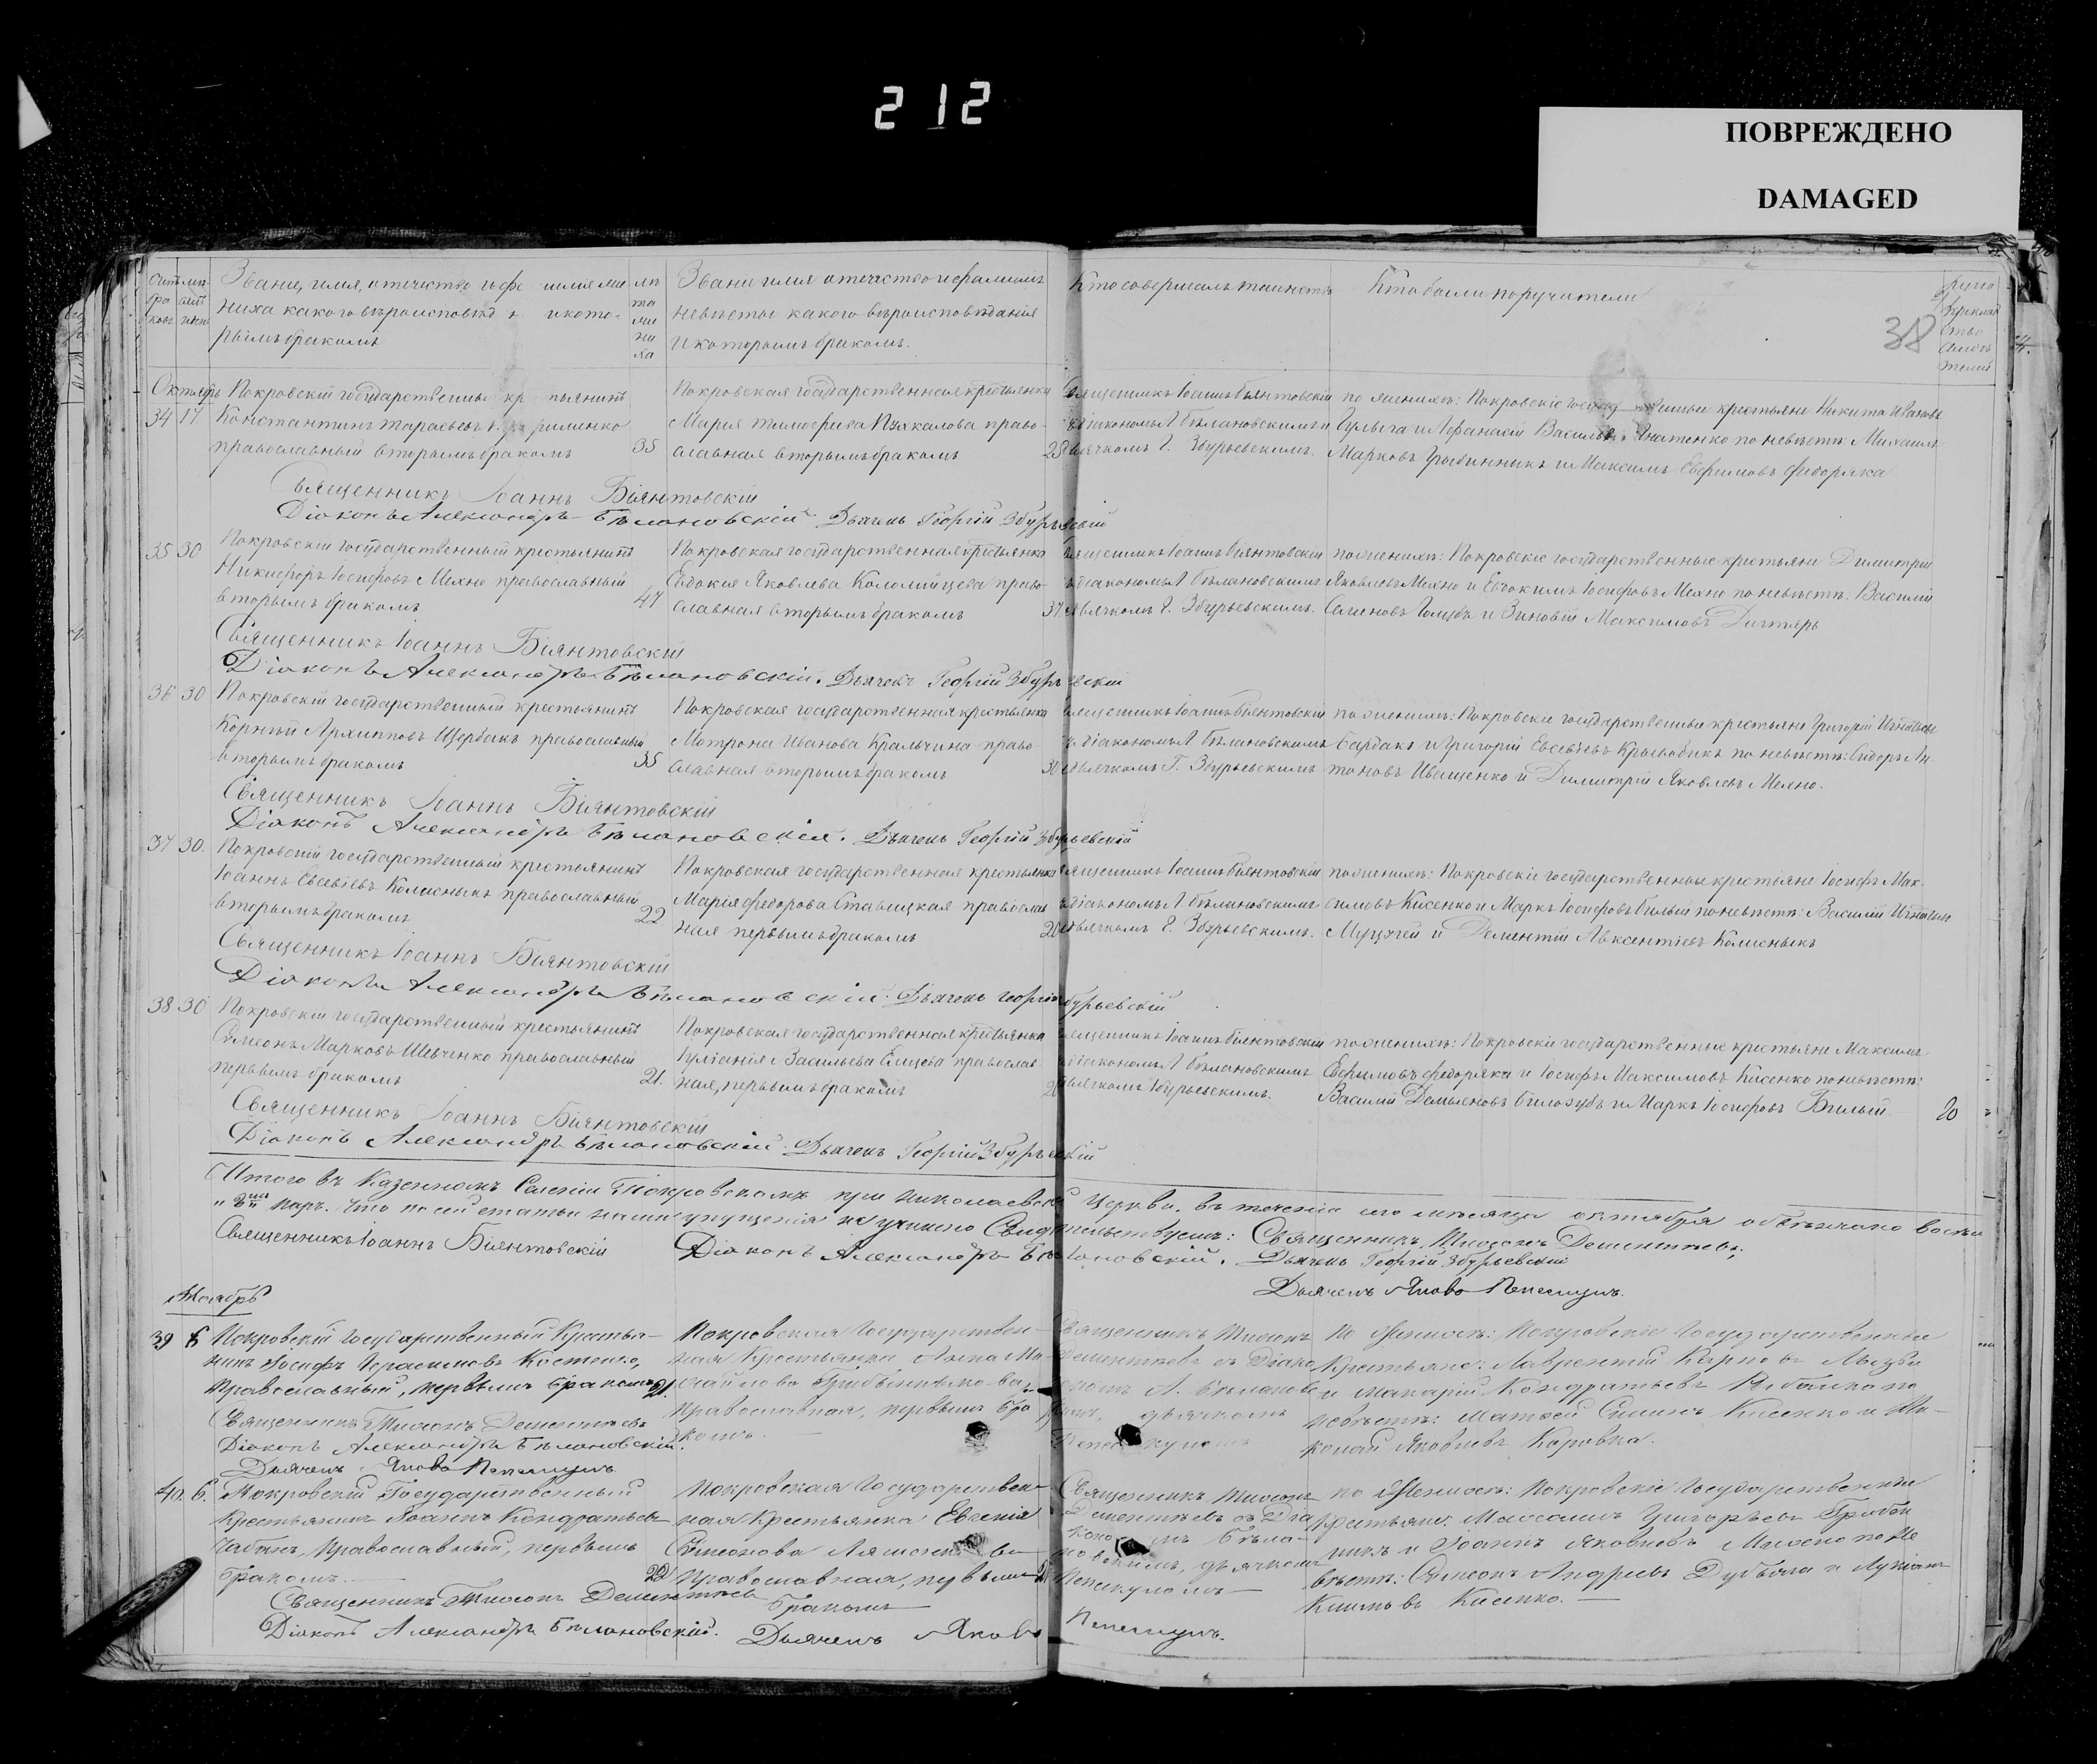 212
ПОВРЕЖДЕНО
DAMAGED
38
Счетъ бра ковъ
Званіе, имя, отечество и фамилія же
ниха какого вѣроисповѣд и кото-
рымъ бракомъ
лѣ та же ни ха
Званіе имя отечество и фамилія
невѣсты какого вѣроисповѣданія
и которымъ бракомъ.
Кто совершалъ таинство
Кто были поручители
Октябрь
34 17.
Покровскій государственный кр тьянинъ
Константинъ Тарасьевъ
православный вторымъ бракомъ
35
Покровская государственная крестьянка
Марія Тимофеева право-
славная вторымъ бракомъ
25
Священникъ Іоаннъ Біянтовскій
съ діакономъ А. Бѣлановскимъ и
дьячкомъ Г. Збурьевскимъ.
по женихѣ: Покровскіе крестьяне Никита Ивановъ
Гулыга и Афанасій Васильевъ Игнатенко по невѣстѣ: Михаилъ
Марковъ Грибинникъ и Максимъ Евфимовъ Федоряка
Священникъ Іоаннъ Біянтовскій
Діаконъ Александръ Бѣлановскій Дьячекъ Георгій Збурьевскій
35 30
Покровскій государственный крестьянинъ
Никифоръ Іосифовъ Махно православный
вторымъ бракомъ
47
Покровская государственная крестьянка
Евдокія Яковлева Коломійцева право-
славная вторымъ бракомъ
37
Священникъ Іоаннъ Біянтовскій
съ діакономъ А. Бѣлановскимъ
дьячкомъ Г. Збурьевскимъ.
по женихѣ: Покровскіе государственные крестьяне Димитрій
Яковлевъ Махно и Евдокимъ Іосифовъ Махно по невѣстѣ: Василій
Семеновъ Голубъ и Зиновій Максимовъ Дигтярь
Священникъ Іоаннъ Біянтовскій
Діаконъ Александръ Бѣлановскій. Дьячекъ Георгій Збурьевскій
36 30
Покровскій государственный крестьянинъ
Корнѣй Архиповъ Щербакъ православный
вторымъ бракомъ
35
Покровская государственная крестьянка
Мотрона Иванова Кральчина право-
славная вторымъ бракомъ
30
Священникъ Іоаннъ Біянтовскій
съ діакономъ А. Бѣлановскимъ
дьячкомъ Г. Збурьевскимъ
по женихѣ: Покровскіе государственные крестьяне Григорій Игнатьевъ
Бардакъ и Григорій Евсевіевъ Кривобикъ по невѣстѣ: Сидоръ Ан-
тоновъ Иващенко и Димитрій Яковлевъ Махно.
Священникъ Іоаннъ Біянтовскій
Діаконъ Александръ Бѣлановскій. Дьячекъ Георгій Збурьевскій
37 30.
Покровскій государственный крестьянинъ
Іоаннъ Евсевіевъ Колисныкъ православный
вторымъ бракомъ
22
Покровская государственная крестьянка
Марія Федорова Ставицкая православ
ная первымъ бракомъ
20
Священникъ Іоаннъ Біянтовскій
съ діакономъ А. Бѣлановскимъ
дьячкомъ Г. Збурьевскимъ.
по женихѣ: Покровскіе государственные крестьяне Іосифъ Мак-
симовъ Кисенко и Маркъ Іосифовъ Билый по невѣстѣ: Василій Игнатьевъ
и Дементій Авксентіевъ Колисныкъ
Священникъ Іоаннъ Біянтовскій
Діаконъ Александръ Бѣлановскій. Дьячекъ Георгій Збурьевскій
38 30
Покровскій государственный крестьянинъ
Симеонъ Марковъ Шевченко православный
первымъ бракомъ
21.
Покровская государственная крестьянка
Іуліанія Васильева православ-
ная, первымъ бракомъ
20
Священникъ Іоаннъ Біянтовскій
съ діакономъ А. Бѣлановскимъ
дьячкомъ Збурьевскимъ.
по женихѣ: Покровскіе государственные крестьяне Максимъ
Евфимовъ Федоряка и Іосифъ Максимовъ Кисенко по невѣстѣ:
Василій Демьяновъ Билозубъ и Маркъ Іосифовъ Билый
20
Священникъ Іоаннъ Біянтовскій
Діаконъ Александръ Бѣлановскій. Дьячекъ Георгій Збурьевскій
Итого въ Казенномъ Селеніи Покровскомъ при Николаевской Церкви. въ теченіе сего мѣсяца октября обвѣнчано восемь
паръ. Что по сей статьи нами упущенія не учинено Свидѣтельствуемъ: Священникъ Тимонъ Дементьевъ,
Священникъ Іоаннъ Біянтовскій Діаконъ Александръ Бѣлановскій. Дьячекъ Георгій Збурьевскій
Дьячекъ Яковъ Пепескулъ.
Ноябрь
39 6
Покровскій Государственный Крестья-
нинъ Іосифъ Герасимовъ Костенко,
Православный, первымъ бракомъ
21
Покровская Государствен-
ная Крестьянка Анна Ми-
хайлова
Православная, первымъ бра
комъ.
Священникъ Тимонъ
Дементьевъ съ Діако
номъ А. Бѣланов
дьячкомъ
по Женихѣ: Покровскіе Государственные
Крестьяне: Лаврентій Карповъ
и Макарій Кондратьевъ по
невѣстѣ: Матѳей Кисенко и Ни-
колай Яковлевъ Коровка.
Священникъ Тимонъ Дементьевъ
Діаконъ Александръ Бѣлановскій.
Дьячекъ Яковъ Пепескулъ
40. 6.
Покровскій Государственный
Крестьянинъ Іоаннъ Кондратьевъ
Чабанъ, Православный, первымъ
бракомъ.
22
Покровская Государствен-
ная Крестьянка Евгенія
Симонова
Православная, первымъ
бракомъ
Священникъ Тимонъ
Дементьевъ съ Діа
Бѣла-
новскимъ, дьячкомъ
Пепескуломъ
по Женихѣ: Покровскіе Государственные
Крестьяне: Максимъ Григорьевъ Грибин
никъ и Іоаннъ Яковлевъ Махно по Не
вѣстѣ: Симеонъ Андреевъ и Лукіанъ
Кисенко.
Священникъ Тимонъ Дементьевъ
Діаконъ Александръ Бѣлановскій. Дьячекъ Яковъ Пепескулъ.